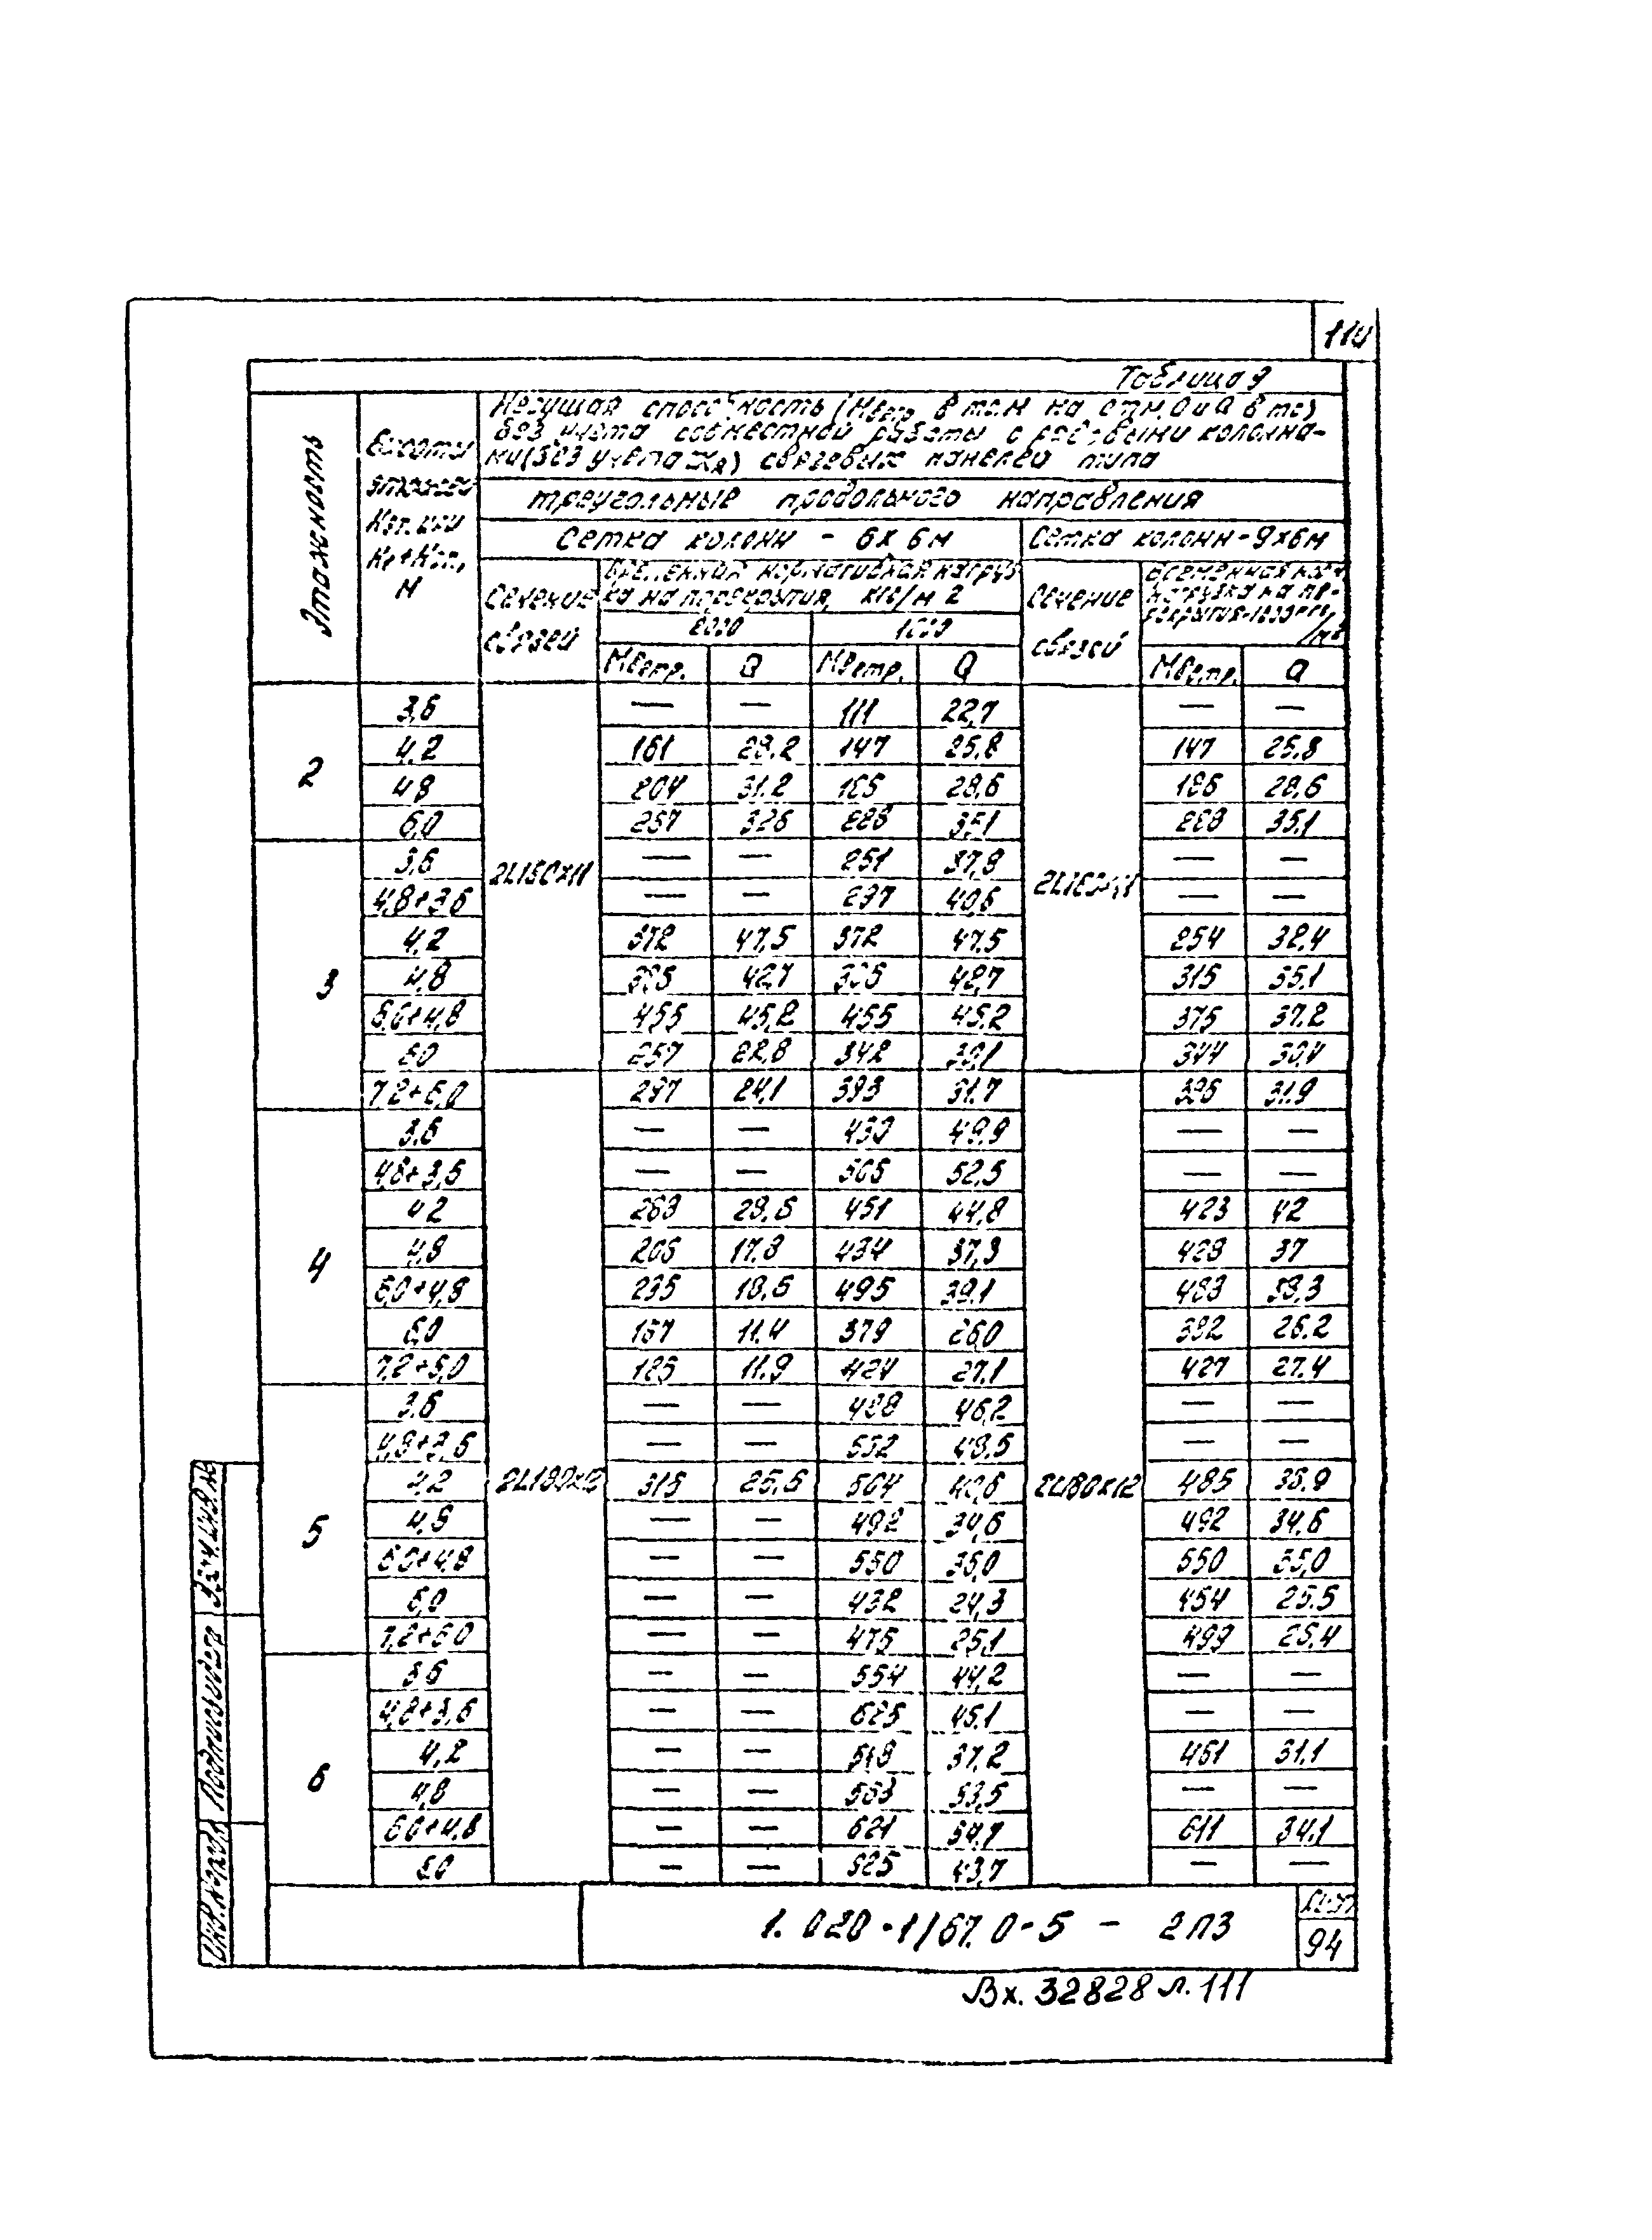 110
Таблица 9
Несущая способность (Mветр. в тс.м на отм. 0 и Q в тс)
без учета совместной работы с рядовыми колонна-
ми (без учета) связевых панелей типа
треугольные продольного направления
Этажность
Высоты
этажей
Hэт. или
H1+Hэт.,
м
Сетка колонн - 6х6м
Сетка колонн-9х6м
Сечение
связей
Временная нормативная нагруз-
ка на перекрытия, кгс/м2
Сечение
связей
Временная
нагрузка на пе-
рекрытия-
/м2
Mветр. Q Mветр. Q Mветр. Q
2
3,6 — — 111 22,7 — —
4,2 161 28,2 147 25,8 147 25,8
4,8 204 31,2 28,6 186 28,6
6,0 257 35,1 35,1
3
2L160х11 2L160х11
3,6 — — 251 37,8 — —
4,8+3,6 — — 297 40,6 — —
4,2 372 47,5 372 47,5 254 32,4
4,8 42,7 42,7 315 35,1
6,0+4,8 455 45,2 455 45,2 375 37,2
6,0 257 22,8 342 344 30,4
7,2+6,0 297 24,1 393 31,7 31,9
4
3,6 — — 430 49,9 — —
4,8+3,6 — — 505 52,5 — —
4,2 451 44,8 423 42
4,8 17,8 434 37,3 428 37
6,0+4,8 235 18,6 495 39,1 483 38,3
6,0 167 11,4 379 26,0 382 26,2
7,2+6,0 11,9 424 27,1 427 27,4
5
3,6 — — 488 46,2 — —
4,8+3,6 — — 552 48,5 — —
4,2 2L180х12 315 25,5 504 40,6 2L180х12 485 38,9
4,8 — — 492 34,6 492 34,6
6,0+4,8 — — 550 550
6,0 — — 432 24,3 454 25,5
7,2+6,0 — — 475 25,1 499 26,4
6
3,6 — — 554 44,2 — —
4,8+3,6 — — 625 — —
4,2 — — 37,2 461 31,1
4,8 — — 563 — —
6,0+4,8 — — 621 34,7 611 34,1
6,0 — — 525 — —
Взам.инв.№
Подпись и дата
Инв.№ подл
1.020-1/87.0-5 - 2ПЗ
Лист
94
Вх. 32828 л. 111